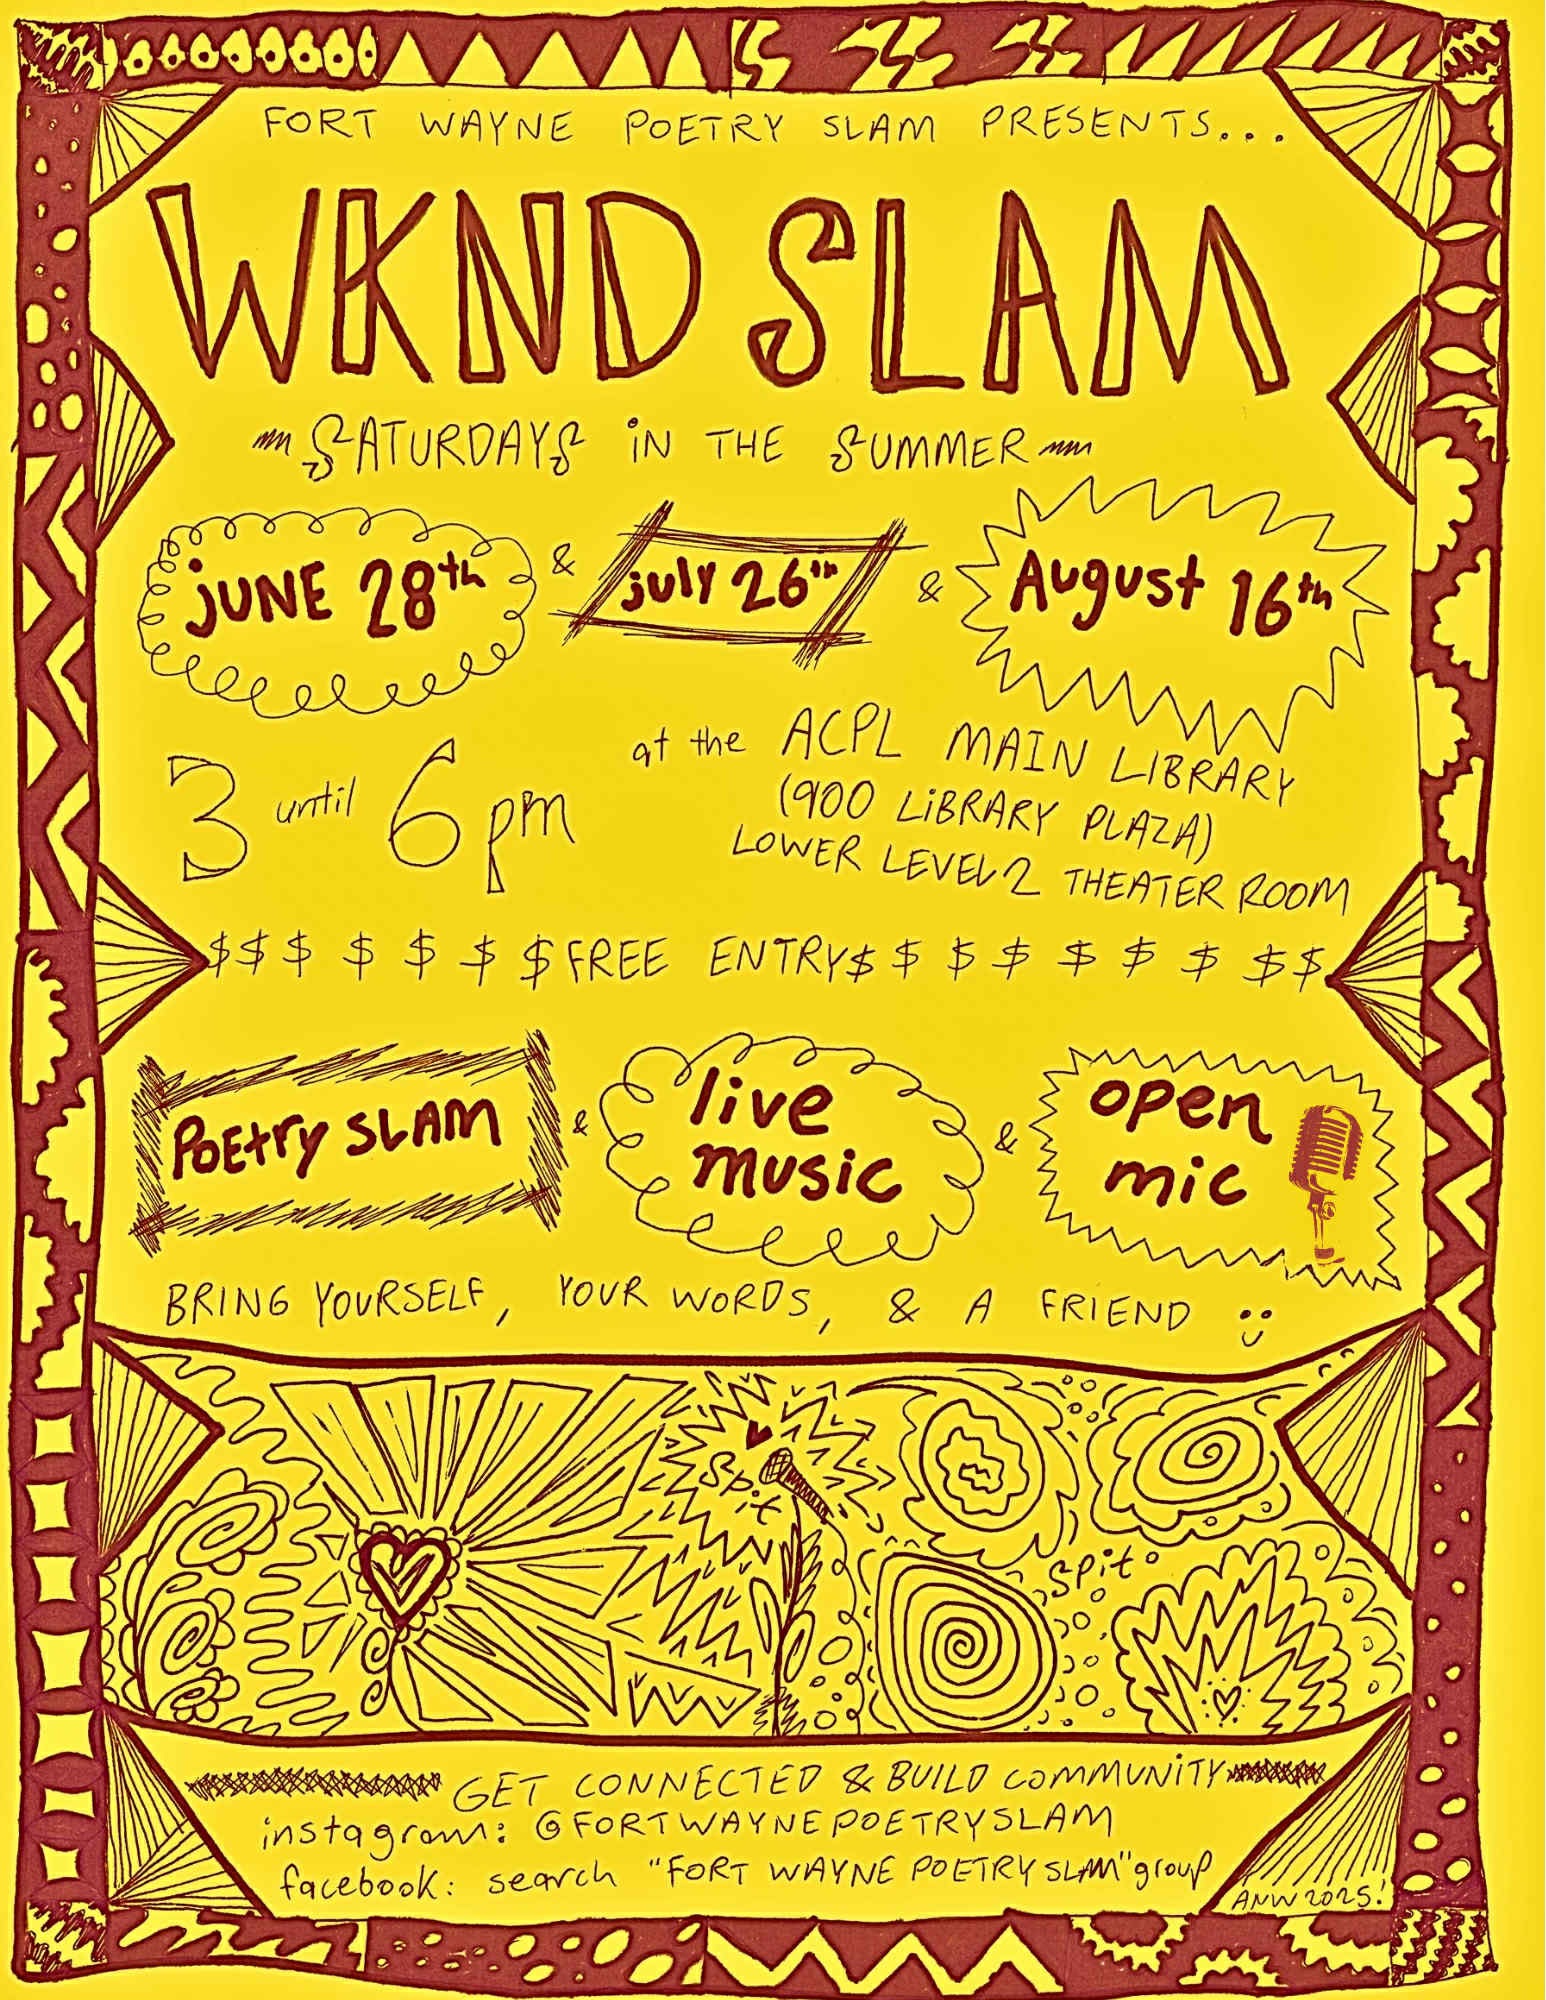 FORT WAYNE POETRY SLAM PRESENTS...
WKND SLAM
SATURDAYS IN THE SUMMER
JUNE 28th & July 26th & August 16th
3 until 6 pm
at the ACPL MAIN LIBRARY
(900 LIBRARY PLAZA)
LOWER LEVEL 2 THEATER ROOM
$$$ $ $ $ $ FREE ENTRY $ $ $ $ $ $ $ $ $
POEtry SLAM & live music & open mic
BRING YOURSELF, YOUR WORDS, & A FRIEND
Spit
Spit
GET CONNECTED & BUILD COMMUNITY
instagram: @FORTWAYNEPOETRYSLAM
facebook: search "FORT WAYNE POETRY SLAM" group
ANW 2025!